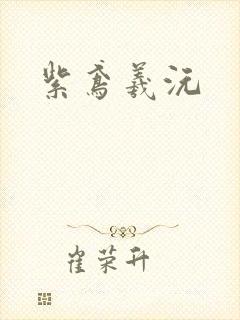 紫鸢羲沅
崔荣升